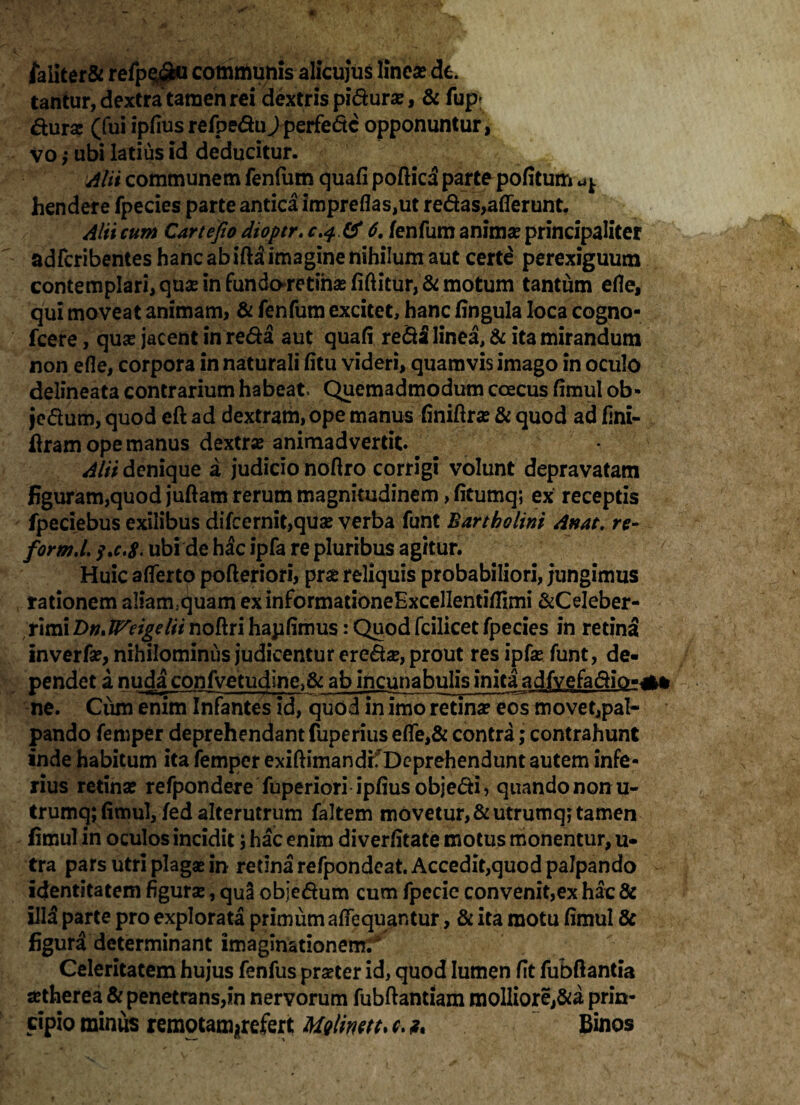 faliter& refpectu communis alicujus lineæ de.
tantur, dextra tamen rei dextris picturæ, & fup
cturæ (fui ipfius refpectu) perfecte opponuntur,
vo; ubi latius id deducitur.
Alii communem fenfum quafi poftica parte pofitum
hendere fpecies parte antica impreffas,ut rectas,afferunt.
Alii cum Cartefio dioptr. c.4 & 6. fenfum animæ principaliter
adfcribentes hanc ab ifta imagine nihilum aut certe perexiguum
contemplari, quæ in fundo retinæ fiftitur, & motum tantùm effe,
qui moveat animam, & fenfum excitet, hanc fingula loca cogno-
fcere, quæ jacent in recta aut quafi recta linea, & ita mirandum
non effe, corpora in naturali fitu videri, quamvis imago in oculo
delineata contrarium habeat. Quemadmodum cœcus fimul ob-
jectum, quod eft ad dextram, ope manus finiftræ & quod ad fini-
ftram ope manus dextræ animadvertit.
Alii denique à judicio noftro corrigi volunt depravatam
figuram,quod juftam rerum magnitudinem, fitumq; ex receptis
fpeciebus exilibus difcernit,quæ verba funt Bartholini Anat. re-
form.l. 3.c.8. ubi de hâc ipfa re pluribus agitur.
Huic afferto pofteriori, præ reliquis probabiliori, jungimus
rationem aliam,quam ex informatione Excellentiffimi & Celeber-
rimi Dn.Weigelii noftri haufimus: Quod fcilicet fpecies in retinâ
inverfæ, nihilominùs judicentur erectæ, prout res ipfæ funt, de-
pendet à nuda confvetudine,& ab incunabulis inita adfvefactio-
ne. Cùm enim Infantes id, quod in imo retinæ eos movet,pal-
pando femper deprehendant fuperius effe,& contrà; contrahunt
inde habitum ita femper exiftimandi. Deprehendunt autem infe-
rius retinæ refpondere fuperiori ipfius objecti, quando non u-
trumq; fimul, fed alterutrum faltem movetur,& utrumq; tamen
fimul in oculos incidit; hâc enim diverfitate motus monentur, u-
tra pars utri plagæ in retinâ refpondeat. Accedit,quod palpando
identitatem figuræ, quâ objectum cum fpecie convenit,ex hâc &
illâ parte pro explorata primùm affequantur, & ita motu fimul &
figurâ determinant imaginationem.
Celeritatem hujus fenfus præter id, quod lumen fit fubftantia
ætherea & penetrans,in nervorum fubftantiam molliorē,&à prin-
cipio minùs remotam,refert Molinett. c. 2. Binos